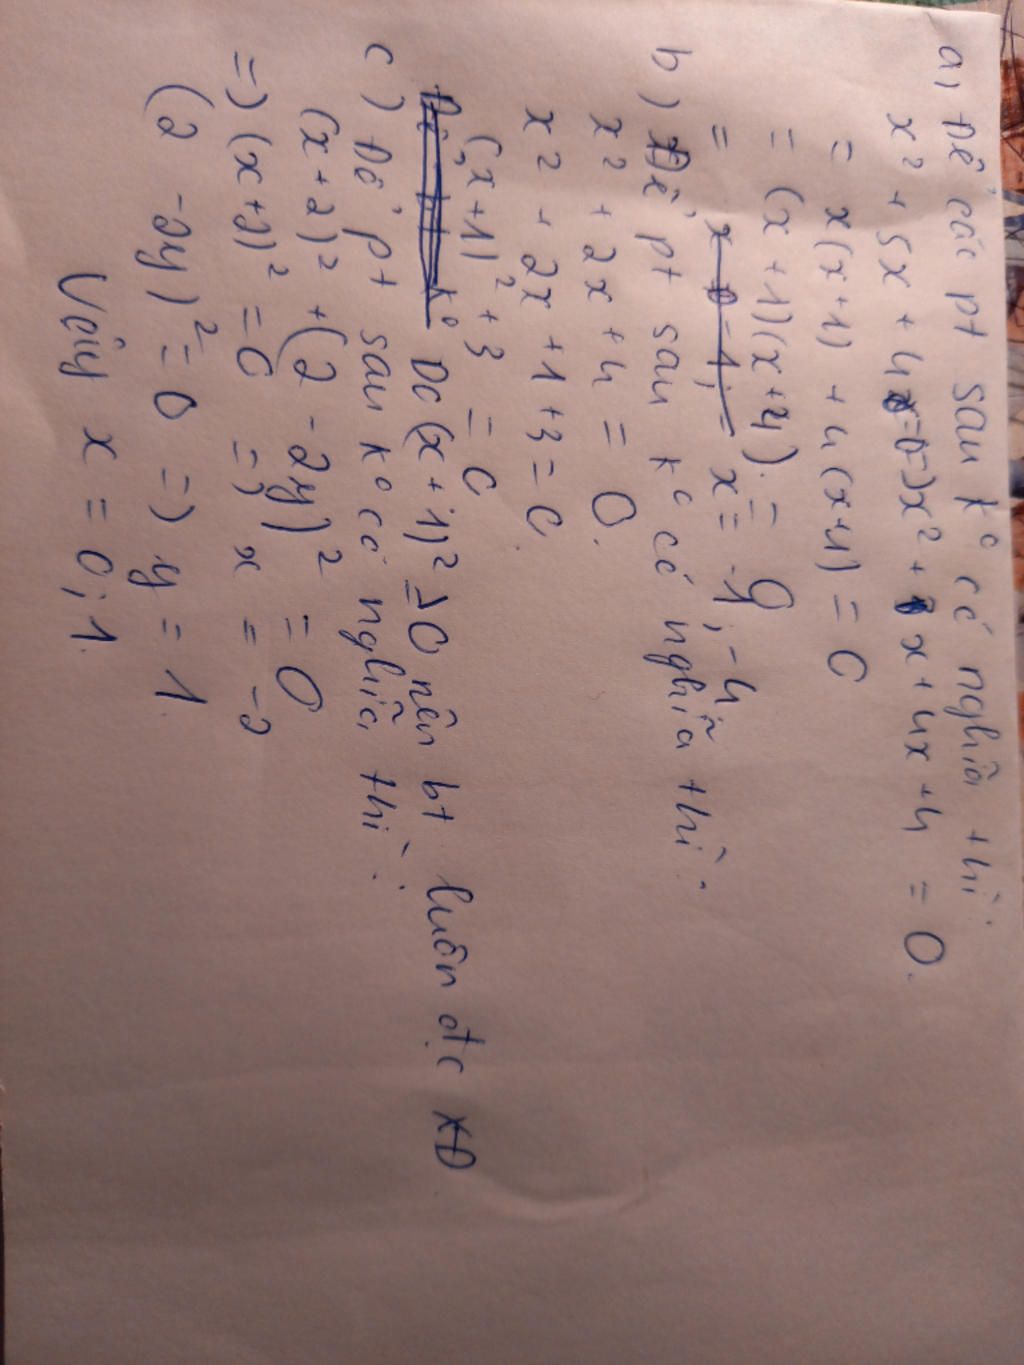 a, Để các pt sau ko có nghĩa thì:
x² + 5x + 4 = 0 => x² + x + 4x + 4 = 0.
= x(x+1) + 4(x+4) = 0
= (x+1)(x+4) = 0
= x = -1; -4
b) Để pt sau ko có nghĩa thì.
x² + 2x + 4 = 0.
x² + 2x + 1 + 3 = 0.
(x+1)² + 3 = 0
Do (x+1)² ≥ 0 nên bt luôn đc XĐ
c) Để pt sau ko có nghĩa thì:
(x+2)² + (2 - 2y)² = 0
=> (x+2)² = 0 => x = -2
(2 - 2y)² = 0 => y = 1
Vậy x = 0; 1.